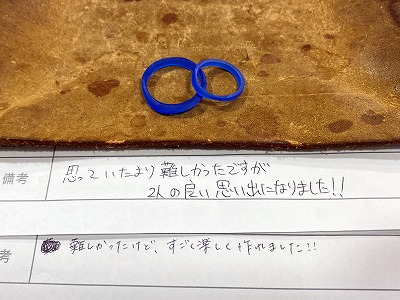 備考
思っていたより難しかったですが
2人の良い思い出になりました!!
考
難しかったけど、すごく楽しく作れました!!